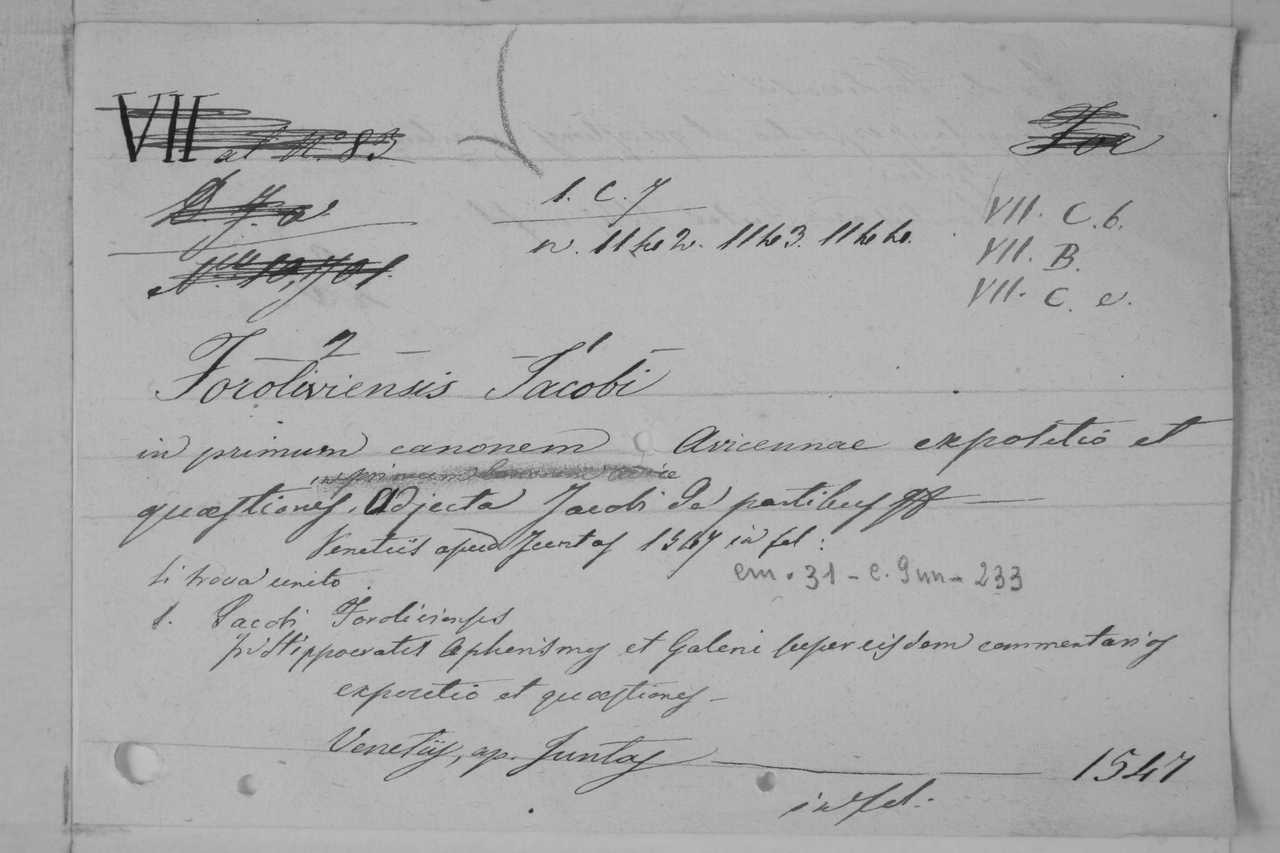 VII al N.° 83
For
1. C. 7
n. 11422. 11423. 11424.
VII. C. b.
VII. B.
VII. C. e.
2 1
Foroliviensis Jacobi
in primum canonem Avicennae expositio et
quæstiones. Adjecta Jacobi De partibus
Venetiis apud Juntas 1547 in fol:
em. 31 - c. Gun - 233
Si trova unito
1. Jacobi Foroliviensis
in Hippocratis Aphorismos et Galeni super eisdem commentarios
expositio et quæstiones -
Venetiis, ap. Juntas 1547
in fol.